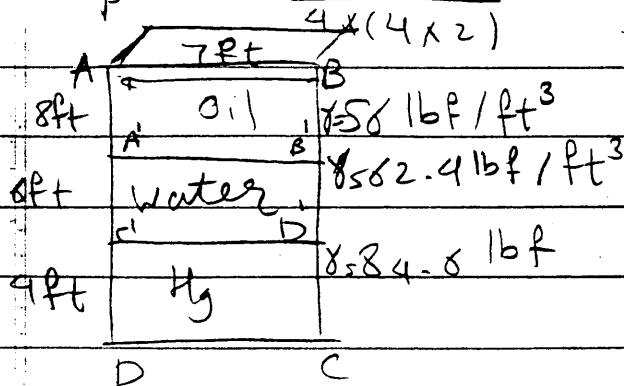 4 × (4 × 2)
7ft
A B
8ft Oil γ=56 lbf / ft³
A' B'
6ft water γ=62.4 lbf / ft³
C' D'
γ=84.6 lbf
9ft Hg
D C